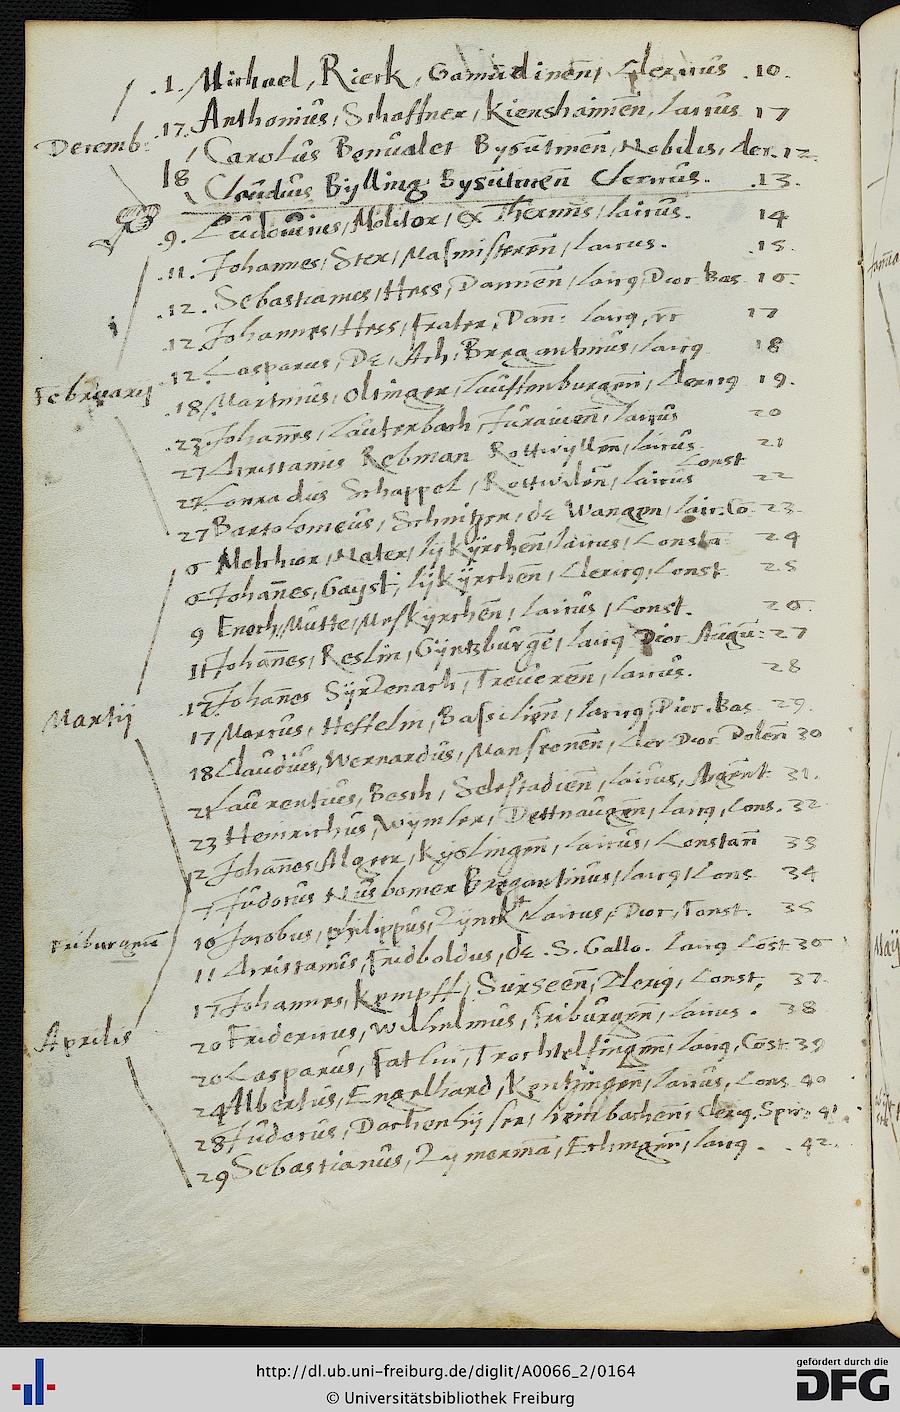 .1. Michael, Rierk, Gamudinen, Clericus .10.
Decemb: .17. Anthonius, Schaffner, Kienshaimen, laicus 17
18 Carolus Bonualet Bysutinen, Nobilis, cler. 12
Claudius Bylling Bysutinen Clericus. .13.
.9. Ludovicus, Molitor, ex Thermis, laicus. 14
.11. Johannes, Ster, Masmisteren, laicus. .15.
.12. Sebastianus, Hess, Dannen, laicq Dioc Bas 16.
.12. Johannes, Hess, frater, Dan: laicq, 17
Februarij .12 Casparus, De, Ach, Bregantinus, laicq 18
.18 Martinus, Olinger, lauffenburgen, clericq 19.
.23. Johannes, Lauterbach, laicus 20
27 Christianus Rebman Rottwyllen, laicus 21
27 Conradus Schappel, Rottwilen, laicus Const 22
27 Bartolomeus, Schnitzer, de Wangen, laic. Co. 23.
6 Melchior, Nater, lykyrchen, laicus, Consta 24
6 Johannes, Gayst, lykyrchen, Clericq, Const 25
9 Enoch, Mutte, Meskyrchen, laicus, Const. 26.
11 Johannes, Reslin, Gyntzburgen, laicq Dioc Augu: 27
Martij .17 Johannes Treueren, laicus. 28
17 Marcus, Heffelin, Basilien, laicq, Dioc. Bas 29.
18 Claudius, Wernardus, cler Dioc 30
21 Laurentius, Besch, Selestadien, laicus, Argent. 31.
23 Heinrichus, Wymler, Dettnaugen, laicq, Cons. 32
2 Johannes, Mager, Kyslingen, laicus, Constan 33
7 Judocus Nusbomer Bregantinus, laicq, Cons 34
Friburgens 10 Jacobus, philippus, laicus, Dioc, Const. 35
11 Christianus, Fridboldus, de .S. Gallo. laicq Cost 36
17 Johannes, Kempff, Surseen, Clericq, Const, 37.
Aprilis 20 Fridericus, Wilhelmus, Friburgen, laicus. 38
20 Casparus, Fatlin, Trochtelfingen, laicq, Cost. 39
24 Albertus, Engelhard, Kentzingen, laicus, Cons 40
28 Judocus, Dachenhyser, heinbachen, Clericq, Spir: 41
29 Sebastianus, Zymerman, laicq . .42.
http://dl.ub.uni-freiburg.de/diglit/A0066_2/0164
© Universitätsbibliothek Freiburg
gefördert durch die
DFG